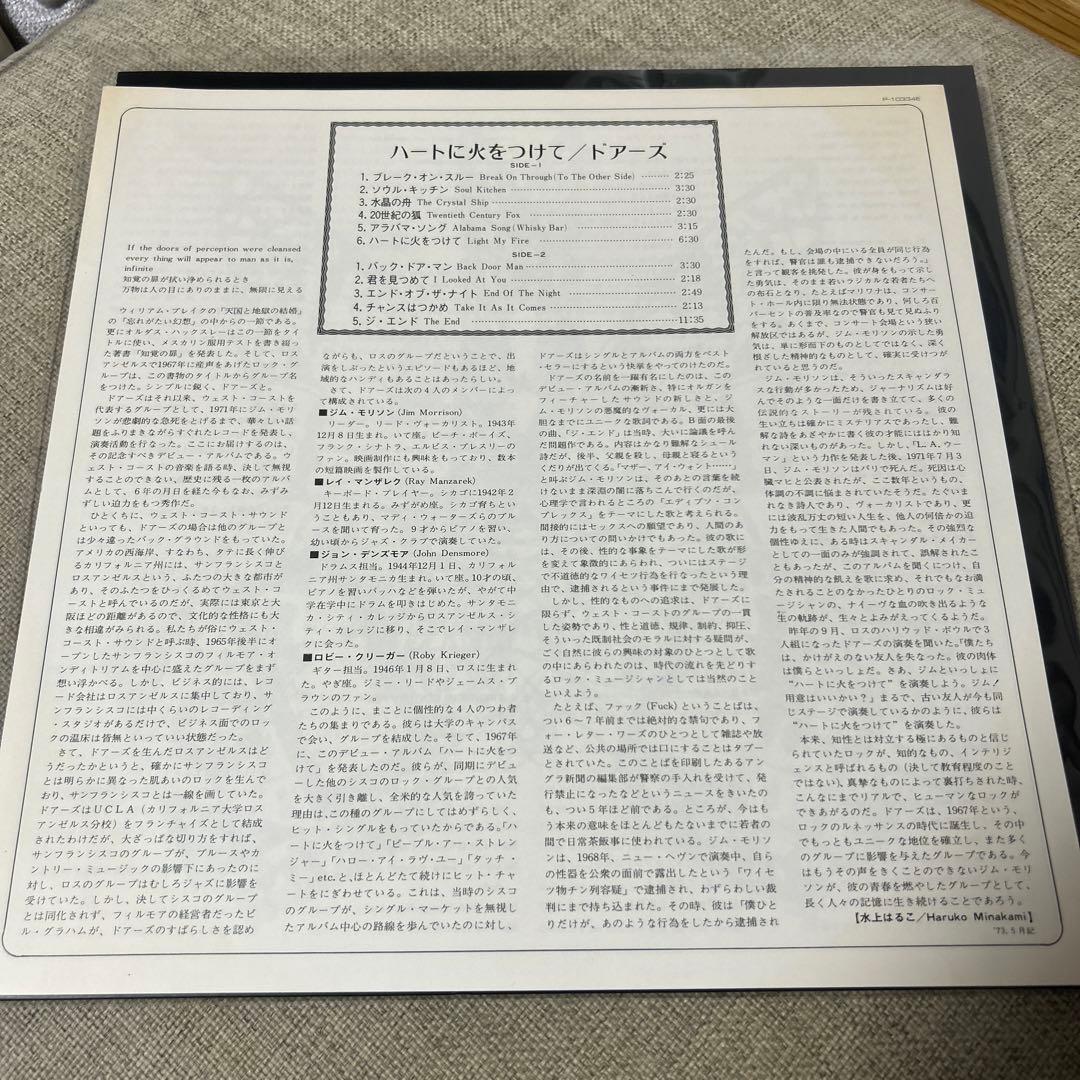 P-10334E
ハートに火をつけて／ドアーズ
SIDE-1
1. ブレーク・オン・スルー Break On Through (To The Other Side) ……… 2:25
2. ソウル・キッチン Soul Kitchen ……… 3:30
3. 水晶の舟 The Crystal Ship ……… 2:30
4. 20世紀の狐 Twentieth Century Fox ……… 2:30
5. アラバマ・ソング Alabama Song (Whisky Bar) ……… 3:15
6. ハートに火をつけて Light My Fire ……… 6:30
SIDE-2
1. バック・ドア・マン Back Door Man ……… 3:30
2. 君を見つめて I Looked At You ……… 2:18
3. エンド・オブ・ザ・ナイト End Of The Night ……… 2:49
4. チャンスはつかめ Take It As It Comes ……… 2:13
5. ジ・エンド The End ……… 11:35
If the doors of perception were cleansed
every thing will appear to man as it is,
infinite
知覚の扉が拭い浄められるとき
万物は人の目にありのままに、無限に見える
ウィリアム・ブレイクの「天国と地獄の結婚」
の「忘れがたい幻想」の中からの一節である。
更にオルダス・ハックスレーはこの一節をタイ
トルに使い、メスカリン服用テストを書き綴っ
た著書「知覚の扉」を発表した。そして、ロス
アンゼルスで1967年に産声をあげたロック・グ
ループは、この書物のタイトルからグループ名
をつけた。シンプルに鋭く、ドアーズと。
ドアーズはそれ以来、ウェスト・コーストを
代表するグループとして、1971年にジム・モリ
ソンが悲劇的な急死をとげるまで、華々しい話
題をふりまきながらすぐれたレコードを発表し、
演奏活動を行なった。ここにお届けするのは、
その記念すべきデビュー・アルバムである。ウ
ェスト・コーストの音楽を語る時、決して無視
することのできない、歴史に残る一枚のアルバ
ムとして、6年の月日を経た今もなお、みずみ
ずしい迫力をもつ秀作だ。
ひとくちに、ウェスト・コースト・サウンド
といっても、ドアーズの場合は他のグループと
は少々違ったバック・グラウンドをもっていた。
アメリカの西海岸、すなわち、タテに長く伸び
るカリフォルニア州には、サンフランシスコと
ロスアンゼルスという、ふたつの大きな都市が
あり、そのふたつをひっくるめてウェスト・コ
ーストと呼んでいるのだが、実際には東京と大
阪ほどの距離があるので、文化的な性格にも大
きな相違がみられる。私たちが俗にウェスト・
コースト・サウンドと呼ぶ時、1965年後半にオ
ープンしたサンフランシスコのフィルモア・オ
ーディトリアムを中心に盛えたグループをまず
想い浮かべる。しかし、ビジネス的には、レコ
ード会社はロスアンゼルスに集中しており、サ
ンフランシスコには中くらいのレコーディング
・スタジオがあるだけで、ビジネス面でのロック
の温床は皆無といっていい状態だった。
さて、ドアーズを生んだロスアンゼルスはど
うだったかというと、確かにサンフランシスコ
とは明らかに異なった肌あいのロックを生んで
おり、サンフランシスコとは一線を画していた。
ドアーズはUCLA（カリフォルニア大学ロス
アンゼルス分校）をフランチャイズとして結成
されたわけだが、大ざっぱな切り方をすれば、
サンフランシスコのグループが、ブルースやカ
ントリー・ミュージックの影響下にあったのに
対し、ロスのグループはむしろジャズに影響を
受けていた。しかし、決してシスコのグループ
とは同化されず、フィルモアの経営者だったビ
ル・グラハムが、ドアーズのすばらしさを認め
ながらも、ロスのグループだということで、出
演をしぶったというエピソードもあるほど、地
域的なハンディもあることはあったらしい。
さて、ドアーズは次の4人のメンバーによっ
て構成されている。
■ジム・モリソン (Jim Morrison)
リーダー。リード・ヴォーカリスト。1943年
12月8日生まれ。いて座。ビーチ・ボーイズ、
フランク・シナトラ、エルビス・プレスリーの
ファン。映画制作にも興味をもっており、数本
の短篇映画を製作している。
■レイ・マンザレク (Ray Manzarek)
キーボード・プレイヤー。シカゴに1942年2
月12日生まれ。みずがめ座。シカゴ育ちという
こともあり、マディ・ウォーターズらのブル
ースを聞いて育った。9才からピアノを習い、
幼い頃からジャズ・クラブで演奏していた。
■ジョン・デンズモア (John Densmore)
ドラムス担当。1944年12月1日、カリフォル
ニア州サンタモニカ生まれ。いて座。10才の頃、
ピアノを習いバッハなどを弾いたが、やがて中
学在学中にドラムを叩きはじめた。サンタモニ
カ・シティ・カレッジからロスアンゼルス・シ
ティ・カレッジに移り、そこでレイ・マンザレ
クに会った。
■ロビー・クリーガー (Roby Krieger)
ギター担当。1946年1月8日、ロスに生まれ
た。やぎ座。ジミー・リードやジェームス・ブ
ラウンのファン。
このように、まことに個性的な4人のつわ者
たちの集まりである。彼らは大学のキャンパス
で会い、グループを結成した。そして、1967年
に、このデビュー・アルバム「ハートに火をつ
けて」を発表したのだ。彼らが、同期にデビュ
ーした他のシスコのロック・グループとの人気
を大きく引き離し、全米的な人気を誇っていた
理由は、この種のグループにしてはめずらしく、
ヒット・シングルをもっていたからである。「ハ
ートに火をつけて」「ピープル・アー・ストレン
ジャー」「ハロー・アイ・ラヴ・ユー」「タッチ・
ミー」etc.と、ほとんどたて続けにヒット・チャ
ートをにぎわせている。これは、当時のシスコ
のグループが、シングル・マーケットを無視し
たアルバム中心の路線を歩んでいたのに対し、
ドアーズはシングルとアルバムの両方をベスト
・セラーにするという快挙をやってのけたのだ。
ドアーズの名前を一躍有名にしたのは、この
デビュー・アルバムの漸新さ、特にオルガンを
フィーチャーしたサウンドの新しさと、ジ
ム・モリソンの悪魔的なヴォーカル、更には大
胆なまでにユニークな歌詞である。B面の最後
の曲、「ジ・エンド」は当時、大いに論議を呼ん
だ問題作である。内容はかなり難解なシュール
詩だが、後半、父親を殺し、母親と寝るという
くだりが出てくる。「マザー、アイ・ウォント……」
と叫ぶジム・モリソンは、そのあとの言葉を続
けないまま深淵の闇に落ちこんで行くのだが、
心理学で言われるところの「エディプス・コン
プレックス」をテーマにした歌と考えられる。
間接的にはセックスへの願望であり、人間のあ
り方についての問いかけでもあった。彼の歌に
は、その後、性的な事象をテーマにした歌が形
を変えて象徴的にあらわれ、ついにはステージ
で不道徳的なワイセツ行為を行なったという理
由で、逮捕されるという事件にまで発展した。
しかし、性的なものへの追求は、ドアーズに
限らず、ウェスト・コーストのグループの一貫
した姿勢であり、性と道徳、規律、制約、抑圧、
そういった既制社会のモラルに対する疑問が、
ごく自然に彼らの興味の対象のひとつとして歌
の中にあらわれたのは、時代の流れを先どりす
るロック・ミュージシャンとしては当然のこと
といえよう。
たとえば、ファック(Fuck)ということばは、
つい6〜7年前までは絶対的な禁句であり、フ
ォー・レター・ワーズのひとつとして雑誌や放
送など、公共の場所では口にすることはタブー
とされていた。このことばを印刷したあるアン
グラ新聞の編集部が警察の手入れを受けて、発
行禁止になったなどというニュースをきいたの
も、つい5年ほど前である。ところが、今はも
う本来の意味をほとんどもたないまでに若者の
間で日常茶飯事に使われている。ジム・モリソ
ンは、1968年、ニュー・ヘヴンで演奏中、自ら
の性器を公衆の面前で露出したという「ワイセ
ツ物チン列容疑」で逮捕され、わずらわしい裁
判にまで持ち込まれた。その時、彼は「僕ひと
りだけが、あのような行為をしたから逮捕され
たんだ。もし、会場の中にいる全員が同じ行為
をすれば、警官は誰も逮捕できないだろう。」
と言って観客を挑発した。彼が身をもって示し
た勇気は、そのまま若いラジカルな若者たちへ
の布石となり、たとえばマリワナは、コンサー
ト・ホール内に限り無法状態であり、何しろ百
パーセントの普及率なので警官も見て見ぬふり
をする。あくまで、コンサート会場という狭い
解放区ではあるが、ジム・モリソンの示した勇
気は、単に形而下のものとしてではなく、深く
根ざした精神的なものとして、確実に受けつが
れていると思うのだ。
ジム・モリソンは、そういったスキャンダラ
スな行動が多かったため、ジャーナリズムは好
んでそのような一面だけを書き立てて、多くの
伝説的なストーリーが残されている。彼の
生い立ちは確かにミステリアスであったし、難
解な詩をあざやかに書く彼の才能にははかり知
れない深いものがあった。しかし、「L.A.ウー
マン」という力作を発表した後、1971年7月3
日、ジム・モリソンはパリで死んだ。死因は心
臓マヒと公表されたが、ここ数年というもの、
体調の不調に悩まされていたそうだ。たぐいま
れなき詩人であり、ヴォーカリストであり、更
には波乱万丈の短い人生を、他人の何倍かの迫
力をもって生きた人間でもあった。その強烈な
個性ゆえに、ある時はスキャンダル・メイカー
としての一面のみが強調されて、誤解されたこ
ともあったが、このアルバムを聞くにつけ、自
分の精神的な飢えを歌に求め、それでもなお満
たされることのなかったひとりのロック・ミュ
ージシャンの、ナイーヴな血の吹き出るような
生の軌跡が、生々とよみがえってくるようだ。
昨年の9月、ロスのハリウッド・ボウルで3
人組になったドアーズの演奏を聞いた。「僕たち
は、かけがえのない友人を失なった。彼の肉体
は僕らといっしょだ。さあ、ジムといっしょに
“ハートに火をつけて”を演奏しよう。ジム！
用意はいいかい？」まるで、古い友人が今も同
じステージで演奏しているかのように、彼らは
“ハートに火をつけて”を演奏した。
本来、知性とは対立する極にあるものと信じ
られていたロックが、知的なもの、インテリジ
ェンスと呼ばれるもの（決して教育程度のこと
ではない）、真摯なものによって裏打ちされた時、
こんなにまでリアルで、ヒューマンなロックが
できあがるのだ。ドアーズは、1967年という、
ロックのルネッサンスの時代に誕生し、その中
でもっともユニークな地位を確立し、また多く
のグループに影響を与えたグループである。今
はもうその声をきくことのできないジム・モリ
ソンが、彼の青春を燃やしたグループとして、
長く人々の記憶に生き続けることであろう。
【水上はるこ／Haruko Minakami】
'73.5月記